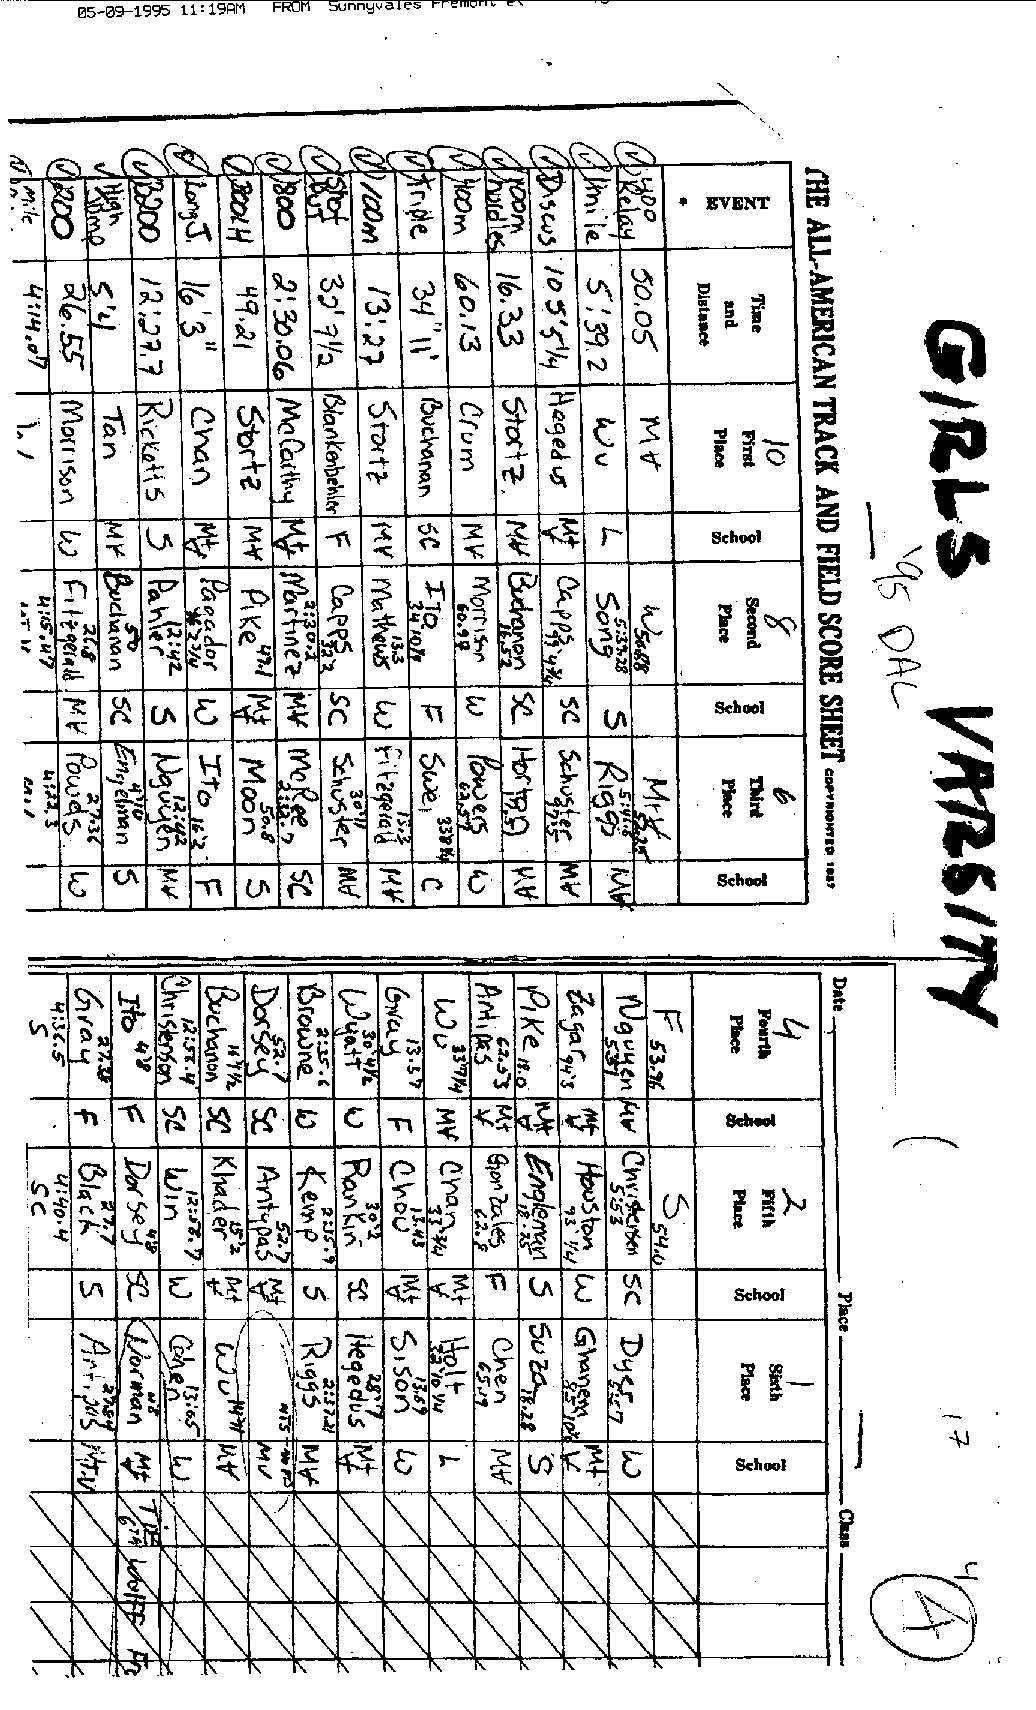 05-09-1995 11:19AM FROM Sunnyvales Fremont
GIRLS VARSITY
'95 DAL
THE ALL-AMERICAN TRACK AND FIELD SCORE SHEET COPYRIGHTED 1987
Date Place Class
4
17
4
* EVENT Time and Distance 10 First Place School 8 Second Place School 6 Third Place School 4 Fourth Place School 2 Fifth Place School 1 Sixth Place School
400 Relay 50.05 MV W 50.68 F 53.96 S 54.0
Mile 5:39.2 Wu L Song 5:39.28 S Riggs MV Nguyen MV Christensen 5:53 SC Dyer W
Discus 105'5 1/4 Hegedus Mt V Capps SC Schuster MV Zagar 94'3 Mt V Houston 93 1/4 W Ghanem Mt V
100m hurdles 16.33 Stortz MV Buchanan 16.52 SC Horton MV Pike 18.0 MV Engleman 18.25 S Suza 18.28 S
400m 60.13 Crum MV Morrison 60.97 W Powers 62.57 W Antipas 62.53 Mt V Gonzales 62.8 F Chen 65.19 MV
Triple 34"11' Buchanan SC Ito 34 10 1/4 F Swei 33 8 3/4 C Wu 33 7 1/4 MV Chan 33 3/4 Mt V Holt L
100m 13:27 Stortz MV Mathews 13.3 W Fitzgerald 13.3 MV Gray 13.37 F Chou 13.43 Mt V Sison 13.69 W
Shot Put 32'7 1/2 Blankenbehler F Capps SC Schuster 30'11 MV Wyatt 30'4 1/2 W Rankin 30'2 SC Hegedus 28'7 Mt V
800 2:30.06 McCarthy Mt V Martinez 2:30.2 MV McRee 2:32.7 SC Browne 2:35.6 W Kemp 2:35.9 S Riggs 2:37.21 MV
300LH 49.21 Stortz MV Pike 49.1 Mt V Moon 50.8 S Dorsey 52.7 SC Antypas 52.7 Mt V MV
Long J. 16'3" Chan Mt V W Ito 16'2 F Buchanan SC Khader 15'2 Mt V Wu MV
3200 12:27.7 Ricketts S Pahler 12:42 S Nguyen 12:42 MV Christenson SC Win 12:58.7 W Cohen 13:05 W
High Jump 5'4 Tan MV Buchanan 5'0 SC Engelman 4'10 S Ito 4'8 F Dorsey 4'8 SC Norman Mt V TIE 6TH WOLFE
200 26.55 Morrison W Fitzgerald 26.8 MV Powers 27.36 W Gray 27.38 F Black 27.7 S Antipas 27.84 Mt V
Mile 4:14.07 4:15.47 4:22.3 4:36.5 S 4:40.4 SC